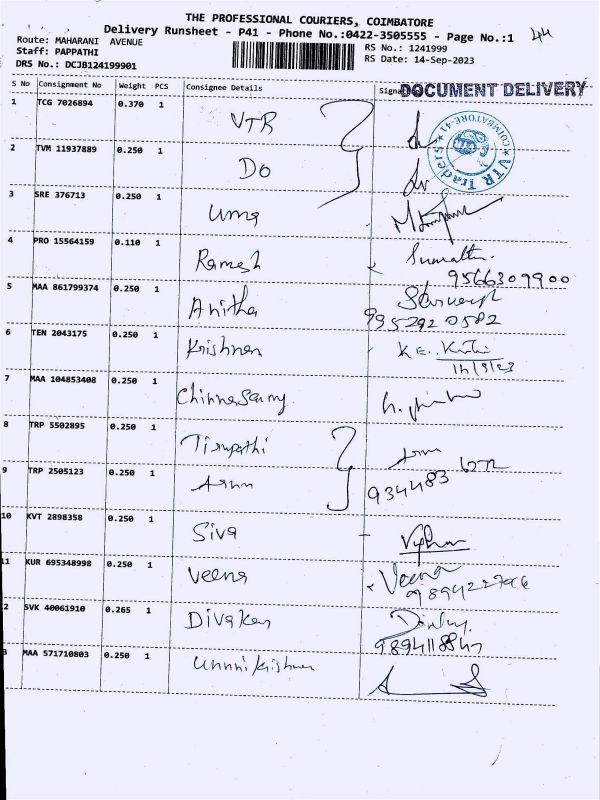 THE PROFESSIONAL COURIERS, COIMBATORE
Delivery Runsheet - P41 - Phone No.:0422-3505555 - Page No.:1 44
Route: MAHARANI AVENUE RS No.: 1241999
Staff: PAPPATHI RS Date: 14-Sep-2023
DRS No.: DCJB124199901
S No Consignment No Weight PCS Consignee Details
DOCUMENT DELIVERY
1 TCG 7026894 0.370 1 VTR
COIMBATORE-41 ★ VTR Traders ★
2 TVM 11937889 0.250 1 Do
3 SRE 376713 0.250 1 Uma
4 PRO 15564159 0.110 1 Ramesh Sumathi
9566309900
5 MAA 861799374 0.250 1 Anitha
995292 0582
6 TEN 2043175 0.250 1 Krishnan K.
14/9/23
7 MAA 104853408 0.250 1 Chinnasamy
8 TRP 5502895 0.250 1 Tirupathi Arun
934483
9 TRP 2505123 0.250 1 Arun
10 KVT 2898358 0.250 1 Siva
11 KUR 695348998 0.250 1 Veena Veena
2 SVK 40061910 0.265 1 Divakar
3 MAA 571710803 0.250 1 Unnikrishnan